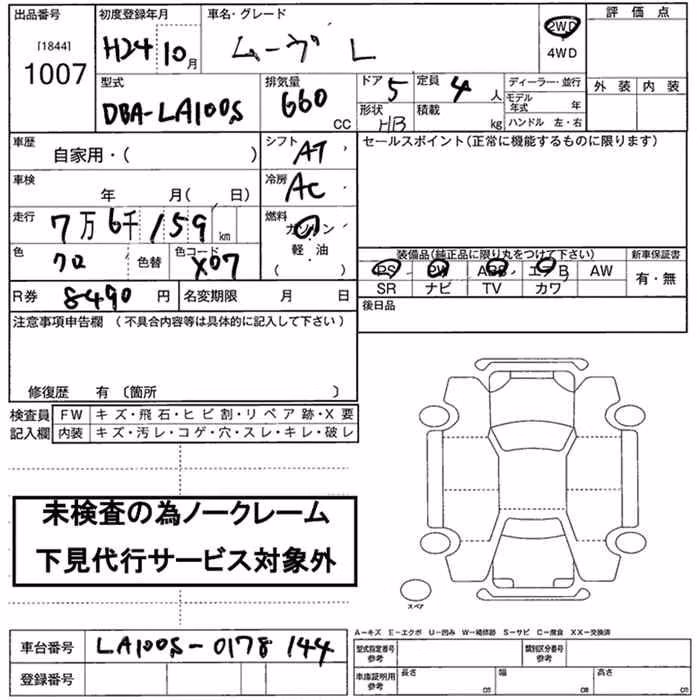 出品番号 初度登録年月 車名・グレード 評価点
[1844] H24 10月 ムーヴ L 2WD
1007 4WD
型式 排気量 ドア 5 定員 4人 ディーラー・並行 外装 内装
DBA-LA100S 660 CC 形状 HB 積載 kg モデル年式 年
ハンドル 左・右
車歴 シフト AT セールスポイント(正常に機能するものに限ります)
自家用・( )
車検 年 月( 日) 冷房 AC
走行 7万6千159km 燃料 ガソリン
軽・油
( )
色 クロ 色替 色コード X07 装備品(純正品に限り丸をつけて下さい) 新車保証書
PS PW ABS エアB AW 有・無
R券 8490円 名変期限 月 日 SR ナビ TV カワ
注意事項申告欄 (不具合内容等は具体的に記入して下さい) 後日品
修復歴 有 〔箇所 〕
検査員 FW キズ・飛石・ヒビ割・リペア跡・X要
記入欄 内装 キズ・汚レ・コゲ・穴・スレ・キレ・破レ
未検査の為ノークレーム
下見代行サービス対象外
スペア
A-キズ E-エクボ U-凹み W-補修跡 S-サビ C-腐食 XX-交換済
車台番号 LA100S-0178144 型式指定番号 参考 類別区分番号 参考
登録番号 車庫証明用 参考 長さ cm 幅 cm 高さ cm